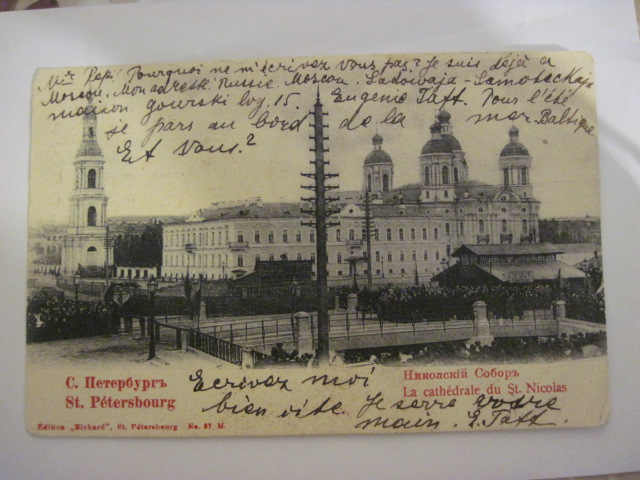 Mr Pepi Pourquoi ne m'écrivez vous pas? Je suis déjà a
Moscou. Mon adresse: Russie Moscou. Sadowaja-Samoteckaja
maison log. 15. Eugenie Tatt. Pour l'été
je pars au bord de la mer Baltique
Et vous?
С. Петербургъ
St. Pétersbourg
Никольскій Соборъ
La cathédrale du St. Nicolas
Ecrivez moi
bien vite. Je serre votre
main. E. Tatt.
Edition „Richard", St. Pétersbourg No. 87 M.